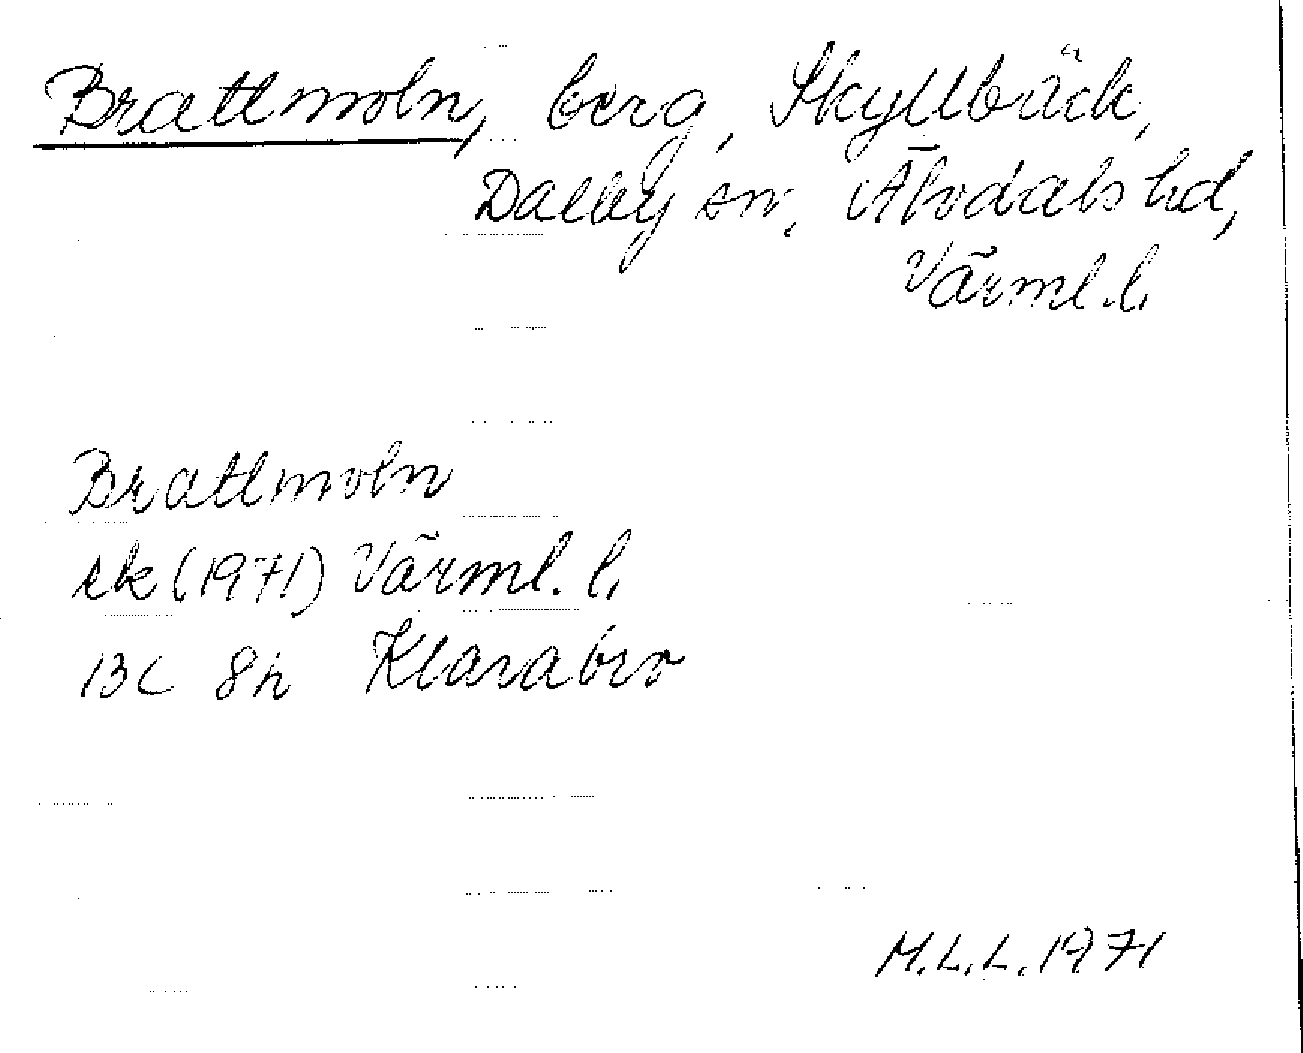 Brattmoln, berg, Skyllbäck,
Dalby sn, Älvdals hd,
Värml. l.
Brattmoln
ek (1971) Värml. l.
13C 8h Klarabro
M.L.L. 1971